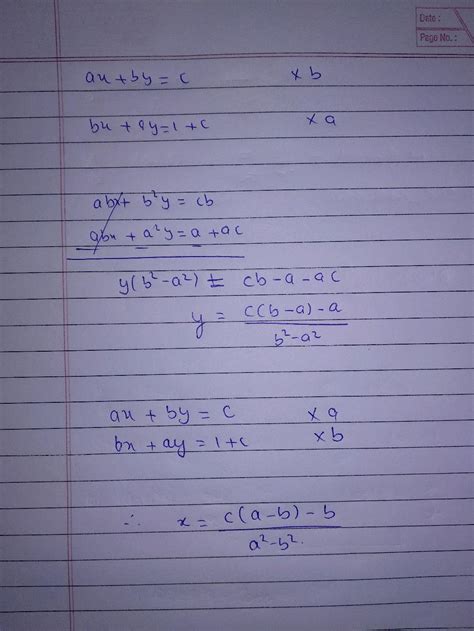 Date :
Page No. :
ax + by = c × b
bx + ay = 1 + c × a
abx + b²y = cb
abx + a²y = a + ac
y(b² - a²) = cb - a - ac
y = c(b - a) - a / b² - a²
ax + by = c × a
bx + ay = 1 + c × b
∴ x = c(a - b) - b / a² - b².